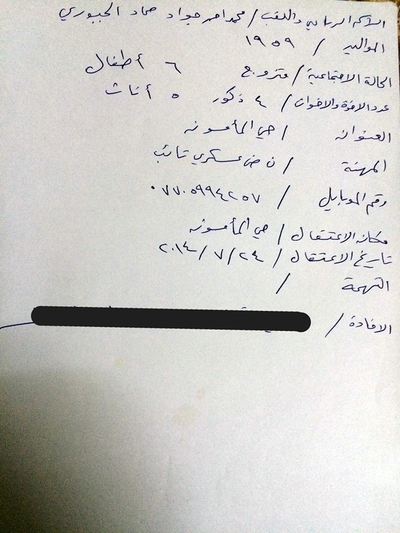 الاسم الرباعي واللقب / محمد احمد جواد حماد الجبوري
المواليد / ١٩٥٩
الحالة الاجتماعية / متزوج ٦ أطفال
عدد الاخوة والاخوات / ٤ ذكور ٥ أناث
العنوان / حي المأمونه
المهنة / ن ض عسكري تائب
رقم الموبايل / ٠٧٧٠٥٩٩٤٢٥٧
مكان الاعتقال / حي المأمونه
تاريخ الاعتقال / ٢٤ / ٧ / ٢٠١٤
التهمة /
الافادة /